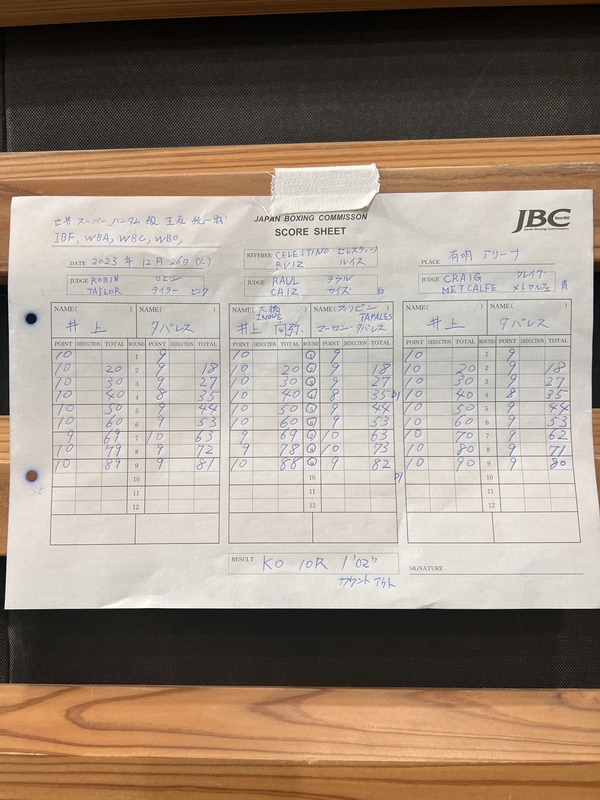 世界 スーパーバンタム級 王座 統一戦
IBF, WBA, WBC, WBO,
JAPAN BOXING COMMISSON
SCORE SHEET
JBC
Japan Boxing Commission
DATE 2023 年 12 月 26 日 (火)
REFEREE CELESTINO セレスティーノ
RUIZ ルイス
PLACE 有明 アリーナ
JUDGE ROBIN ロビン
TAILOR テイラー ピンク
JUDGE RAUL ラウル
CAIZ カイズ 白
JUDGE CRAIG クレイグ
METCALFE メトカルフェ 青
NAME( ) NAME( ) NAME(大橋) NAME(フィリピン) NAME( ) NAME( )
INOUE TAPALES
井上 タパレス 井上 尚弥 マーロン・タパレス 井上 タパレス
POINT DEDUCTION TOTAL ROUND POINT DEDUCTION TOTAL POINT DEDUCTION TOTAL ROUND POINT DEDUCTION TOTAL POINT DEDUCTION TOTAL ROUND POINT DEDUCTION TOTAL
10 1 9 10 1 9 10 1 9
10 20 2 9 18 10 20 2 9 18 10 20 2 9 18
10 30 3 9 27 10 30 3 9 27 10 30 3 9 27
10 40 4 8 35 10 40 4 8 35 D1 10 40 4 8 35
10 50 5 9 44 10 50 5 9 44 10 50 5 9 44
10 60 6 9 53 10 60 6 9 53 10 60 6 9 53
9 69 7 10 63 9 69 7 10 63 10 70 7 9 62
10 79 8 9 72 9 78 8 10 73 10 80 8 9 71
10 89 9 9 81 10 88 9 9 82 10 90 9 9 80
10 10 D1 10
11 11 11
12 12 12
RESULT KO 10R 1'02"
カウント アウト
SIGNATURE